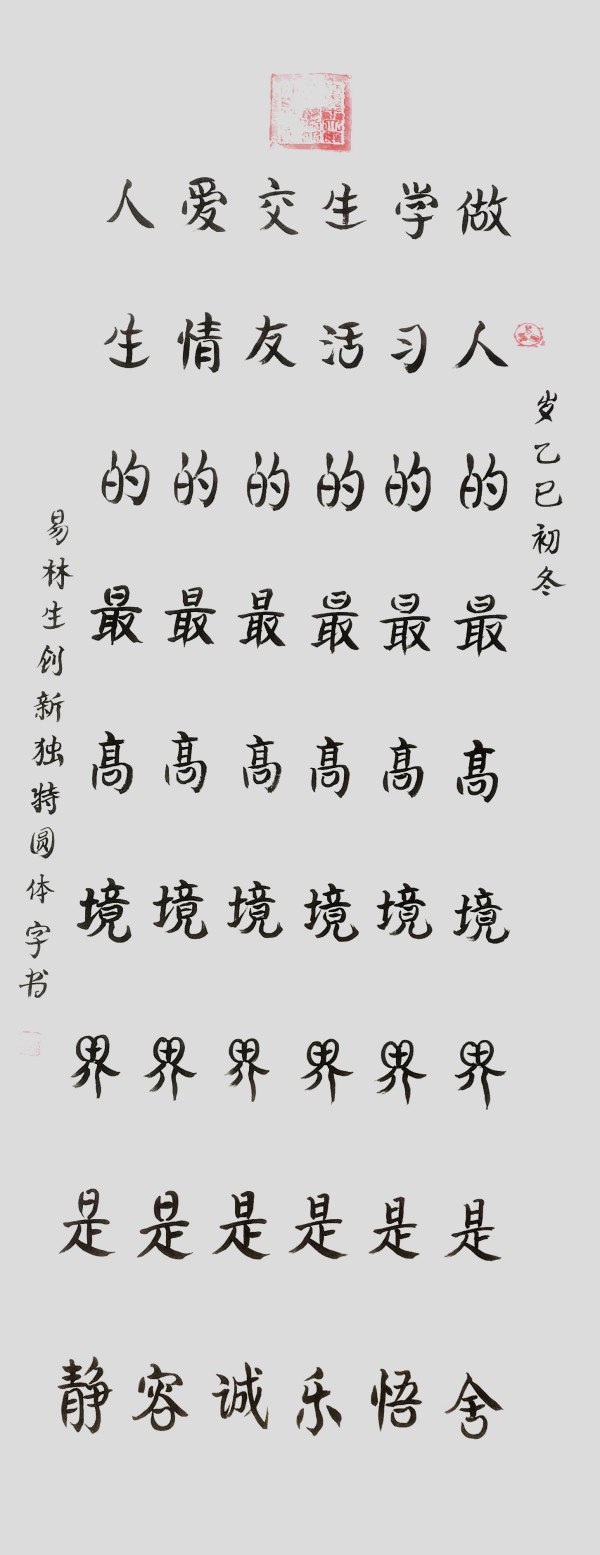 岁乙巳初冬
做人的最高境界是舍
学习的最高境界是悟
生活的最高境界是乐
交友的最高境界是诚
爱情的最高境界是容
人生的最高境界是静
易林生创新独特圆体字书